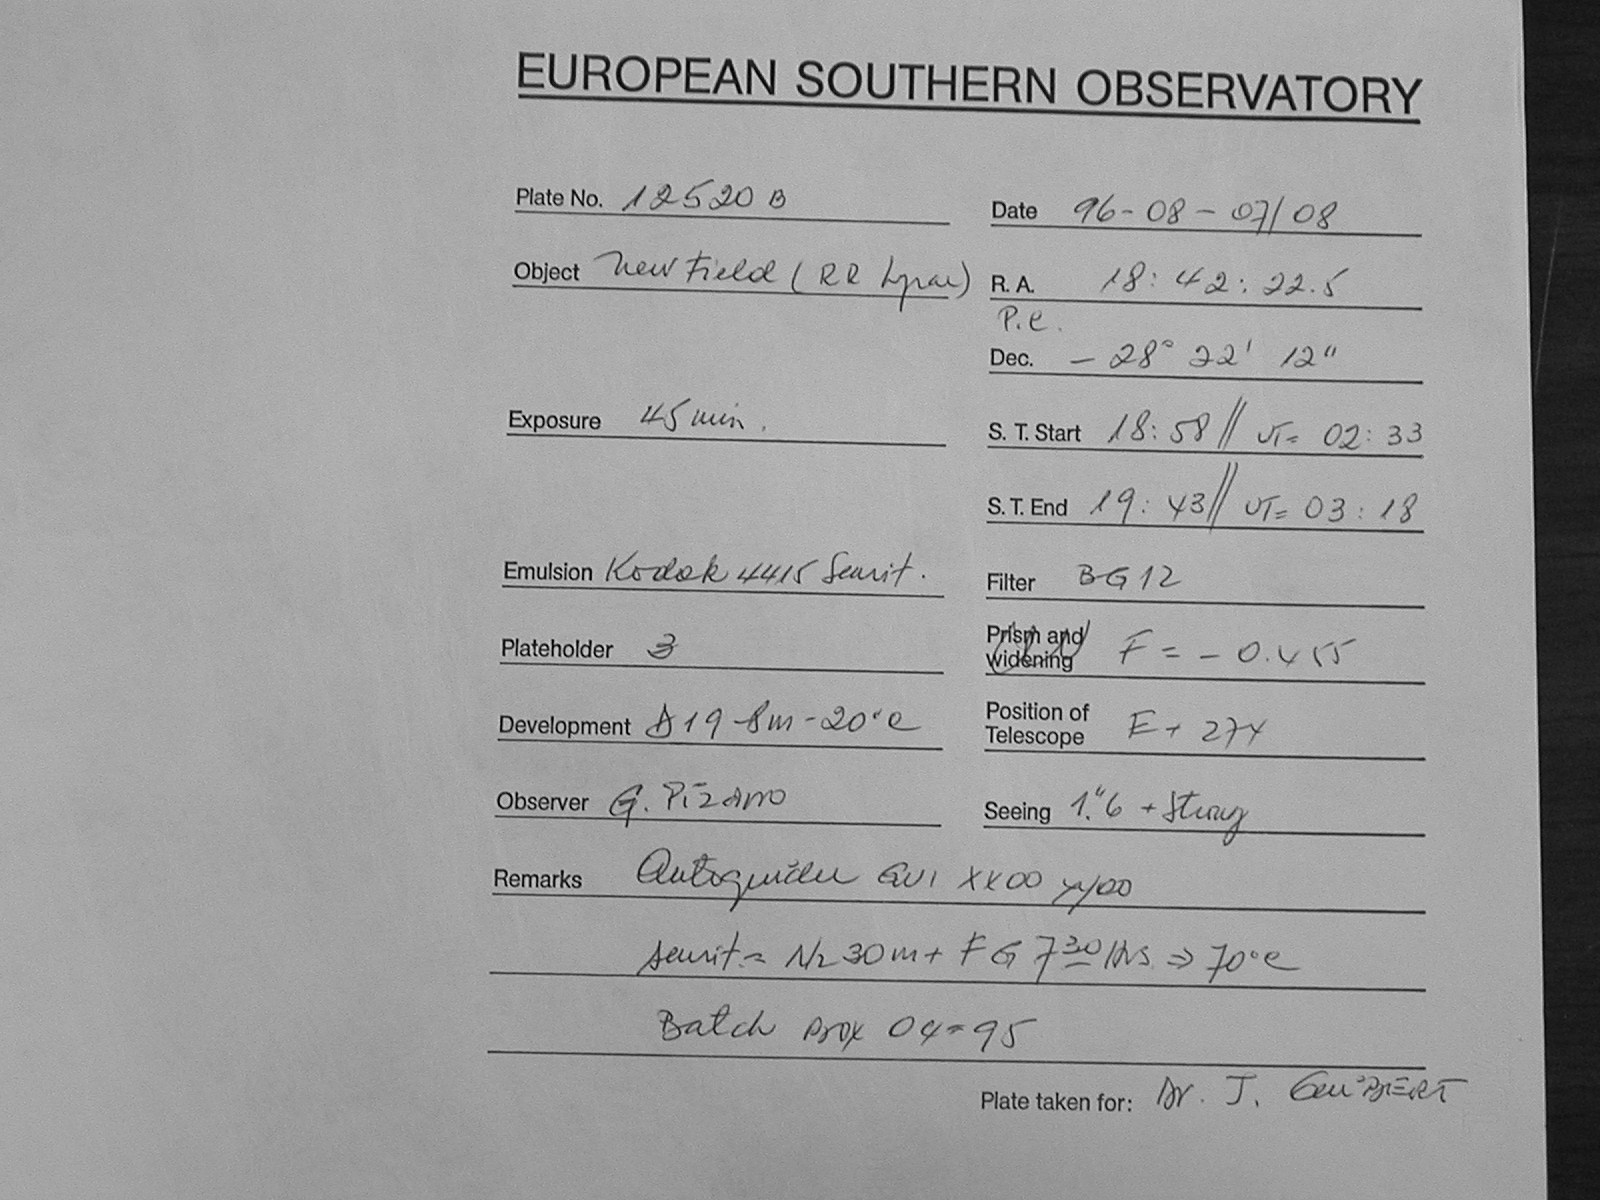 EUROPEAN SOUTHERN OBSERVATORY
Plate No. 12520 B
Date 96-08-07/08
Object New Field (RR Lyrae)
R. A. 18: 42: 22.5
P.e.
Dec. - 28° 22' 12"
Exposure 45 min.
S. T. Start 18: 58 // UT= 02: 33
S. T. End 19: 43 // UT= 03: 18
Emulsion Kodak 4415 Sensit.
Filter BG 12
Plateholder 3
Prism and widening F = - 0.455
Development D19-8m-20°C
Position of Telescope E + 274
Observer G. Pizarro
Seeing 1."6 + Strong
Remarks Autoguider GV1 XX00 YY00
sensit= N2 30m + FG 7 30 hrs => 70°C
Batch box 04-95
Plate taken for: Dr. J. GUIBERT